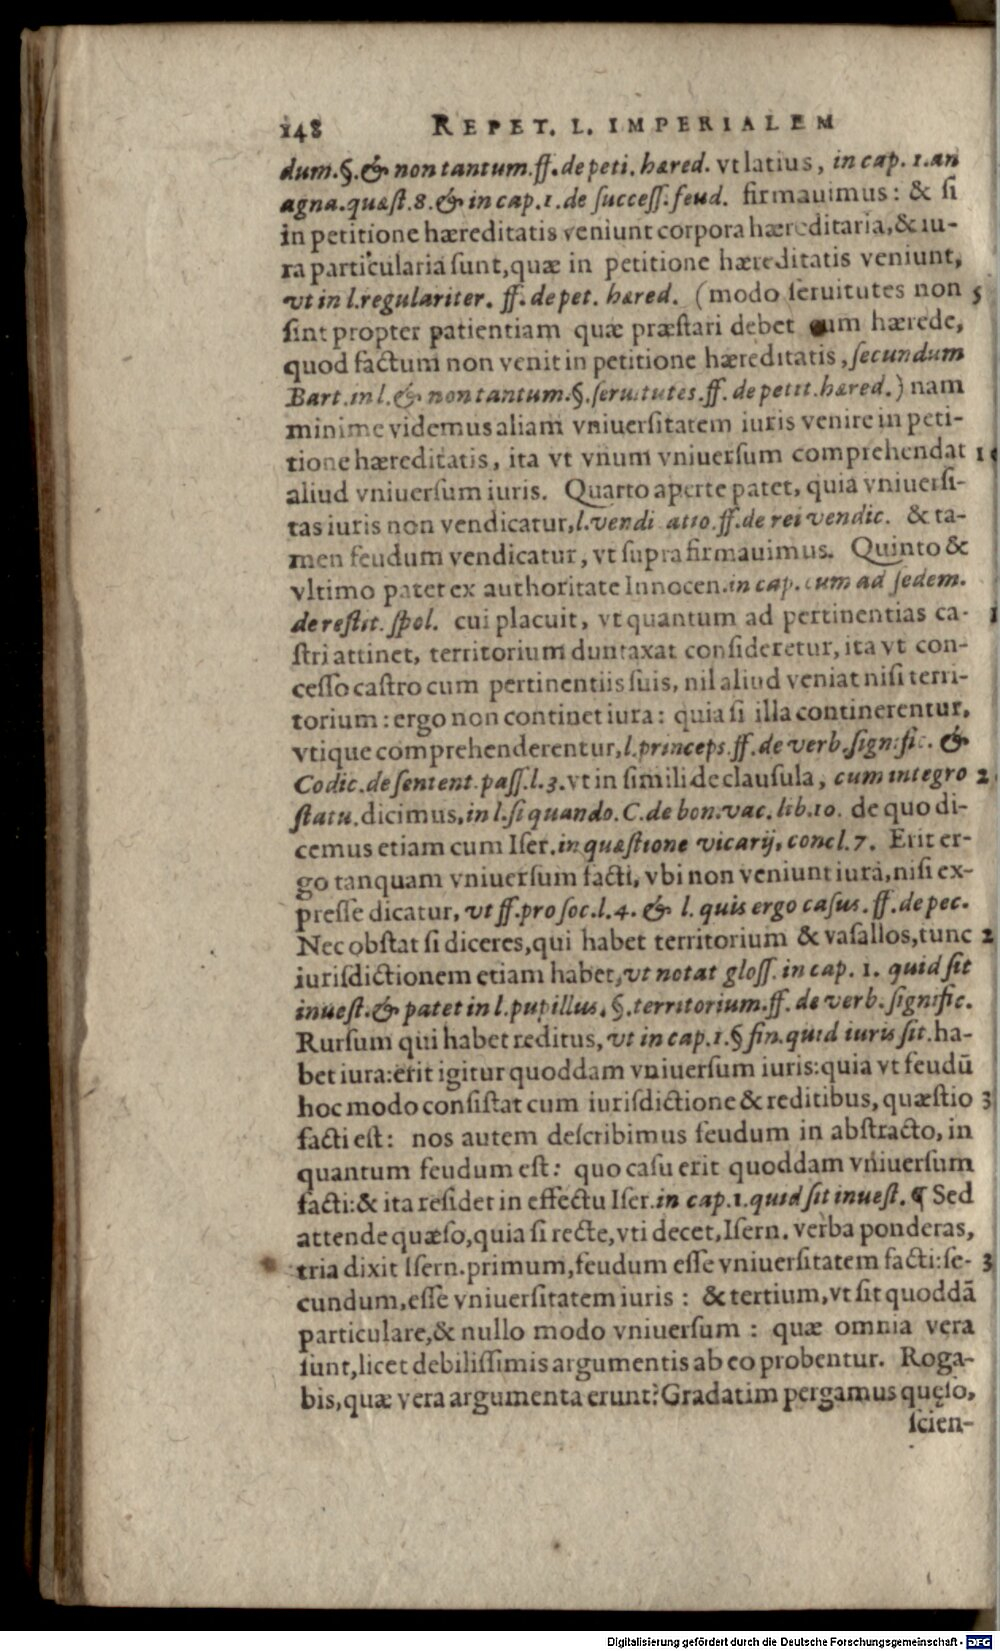 148 REPET. L. IMPERIALEM
dum.§.& non tantum.ff.de peti. hæred. vt latius, in cap. 1. an
agna.quæst.8.& in cap.1.de success.feud. firmauimus: & si
in petitione hæreditatis veniunt corpora hæreditaria,& iu-
ra particularia sunt,quæ in petitione hæreditatis veniunt,
vt in l.regulariter. ff. de pet. hæred. (modo seruitutes non 5
sint propter patientiam quæ præstari debet cum hærede,
quod factum non venit in petitione hæreditatis, secundum
Bart.in l.& non tantum.§.seruitutes.ff. de petit.hæred.) nam
minime videmus aliam vniuersitatem iuris venire in peti-
tione hæreditatis, ita vt vnum vniuersum comprehendat 1
aliud vniuersum iuris. Quarto aperte patet, quia vniuersi-
tas iuris non vendicatur,l.vendi atio.ff.de rei vendic. & ta-
men feudum vendicatur, vt supra firmauimus. Quinto &
vltimo patet ex authoritate Innocen.in cap.cum ad sedem.
de restit. spol. cui placuit, vt quantum ad pertinentias ca- 1
stri attinet, territorium duntaxat consideretur, ita vt con-
cesso castro cum pertinentiis suis, nil aliud veniat nisi terri-
torium: ergo non continet iura: quia si illa continerentur,
vtique comprehenderentur,l.princeps.ff.de verb.signific. &
Codic.de sentent.pass.l.3.vt in simili de clausula, cum integro 2
statu.dicimus,in l.si quando.C.de bon.vac.lib.10. de quo di-
cemus etiam cum Iser.in quæstione vicarij, concl.7. Erit er-
go tanquam vniuersum facti, vbi non veniunt iura,nisi ex-
presse dicatur, vt ff.pro soc.l.4. & l. quis ergo casus.ff.de pec.
Nec obstat si diceres,qui habet territorium & vasallos,tunc 2
iurisdictionem etiam habet,vt notat gloss. in cap. 1. quid sit
inuest.& patet in l.pupillus, §.territorium.ff. de verb.signific.
Rursum qui habet reditus, vt in cap.1.§ fin.quid iuris sit.ha-
bet iura:erit igitur quoddam vniuersum iuris:quia vt feudū
hoc modo consistat cum iurisdictione & reditibus, quæstio 3
facti est: nos autem describimus feudum in abstracto, in
quantum feudum est: quo casu erit quoddam vniuersum
facti:& ita residet in effectu Iser.in cap.1.quid sit inuest.¶ Sed
attende quæso,quia si recte,vti decet,Isern. verba ponderas,
tria dixit Isern.primum,feudum esse vniuersitatem facti:se- 3
cundum,esse vniuersitatem iuris : & tertium,vt sit quoddā
particulare,& nullo modo vniuersum : quæ omnia vera
sunt,licet debilissimis argumentis ab eo probentur. Roga-
bis,quæ vera argumenta erunt? Gradatim pergamus quęso,
scien-
Digitalisierung gefördert durch die Deutsche Forschungsgemeinschaft - DFG